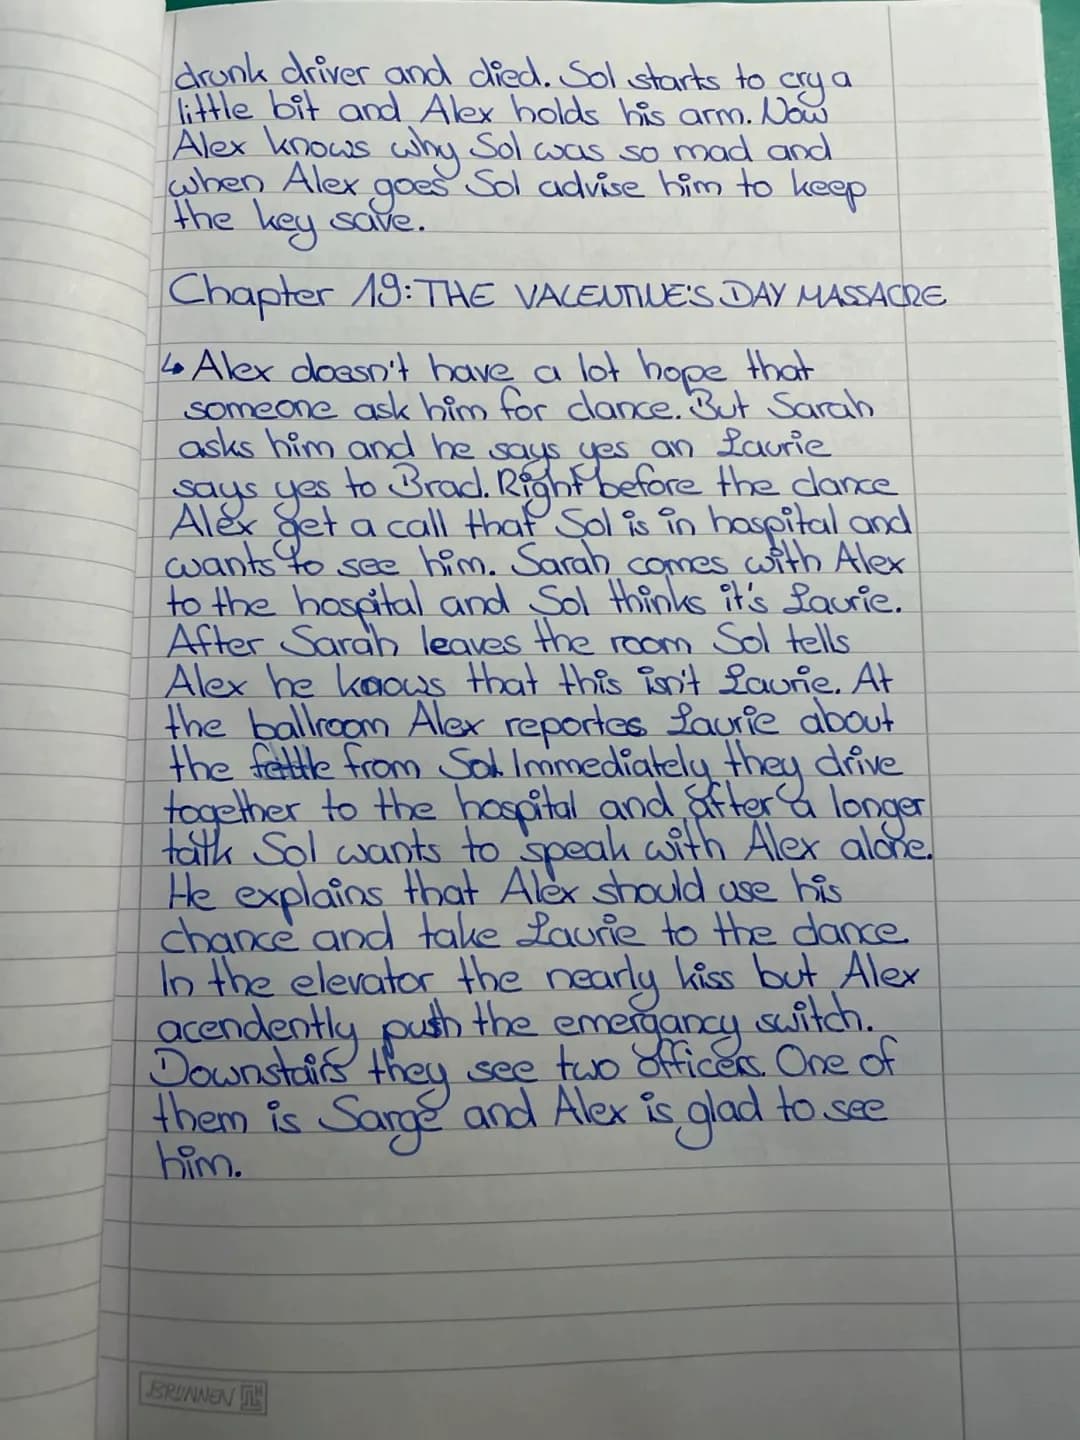 drunk driver and died. Sol starts to cry a
little bit and Alex holds his arm. Now
Alex knows why Sol was so mad and
when Alex goes Sol advise him to keep
the key save.
Chapter 19: THE VALENTINE'S DAY MASSACRE
↳ Alex doesn't have a lot hope that
someone ask him for dance. But Sarah
asks him and he says yes an Laurie
says yes to Brad. Right before the dance
Alex get a call that Sol is in hospital and
wants to see him. Sarah comes with Alex
to the hospital and Sol thinks it's Laurie.
After Sarah leaves the room Sol tells
Alex he knows that this isn't Laurie. At
the ballroom Alex reportes Laurie about
the from Sol. Immediately they drive
together to the hospital and after a longer
talk Sol wants to speak with Alex alone.
He explains that Alex should use his
chance and take Laurie to the dance.
In the elevator the nearly kiss but Alex
acendently push the emergancy switch.
Downstairs they see two officers. One of
them is Sarge and Alex is glad to see
him.
BRUNNEN